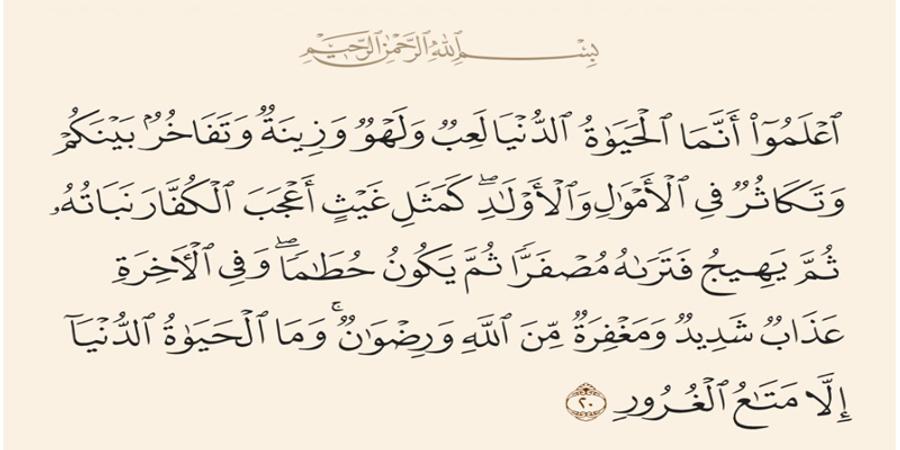 بِسْمِ ٱللَّهِ ٱلرَّحْمَٰنِ ٱلرَّحِيمِ
ٱعْلَمُوٓا۟ أَنَّمَا ٱلْحَيَوٰةُ ٱلدُّنْيَا لَعِبٌ وَلَهْوٌ وَزِينَةٌ وَتَفَاخُرٌۢ بَيْنَكُمْ
وَتَكَاثُرٌ فِى ٱلْأَمْوَٰلِ وَٱلْأَوْلَٰدِ ۖ كَمَثَلِ غَيْثٍ أَعْجَبَ ٱلْكُفَّارَ نَبَاتُهُۥ
ثُمَّ يَهِيجُ فَتَرَىٰهُ مُصْفَرًّا ثُمَّ يَكُونُ حُطَٰمًا ۖ وَفِى ٱلْـَٔاخِرَةِ
عَذَابٌ شَدِيدٌ وَمَغْفِرَةٌ مِّنَ ٱللَّهِ وَرِضْوَٰنٌ ۚ وَمَا ٱلْحَيَوٰةُ ٱلدُّنْيَآ
إِلَّا مَتَٰعُ ٱلْغُرُورِ ٢٠